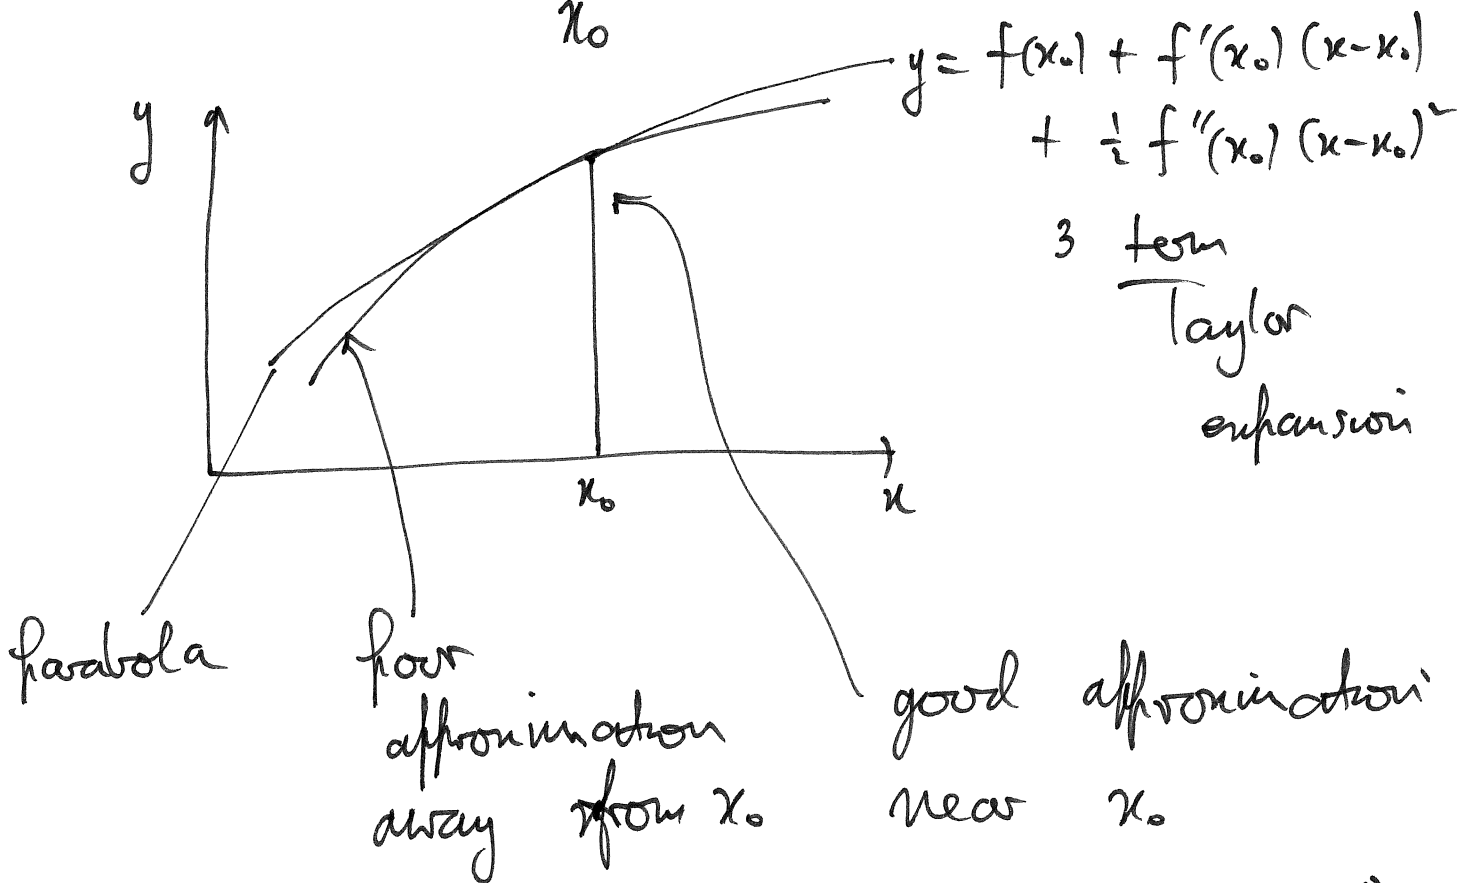 x₀
y = f(x₀) + f'(x₀) (x-x₀)
+ ½ f''(x₀) (x-x₀)²
y
3 term
Taylor
expansion
x₀
x
parabola
poor
approximation
away from x₀
good approximation
near x₀